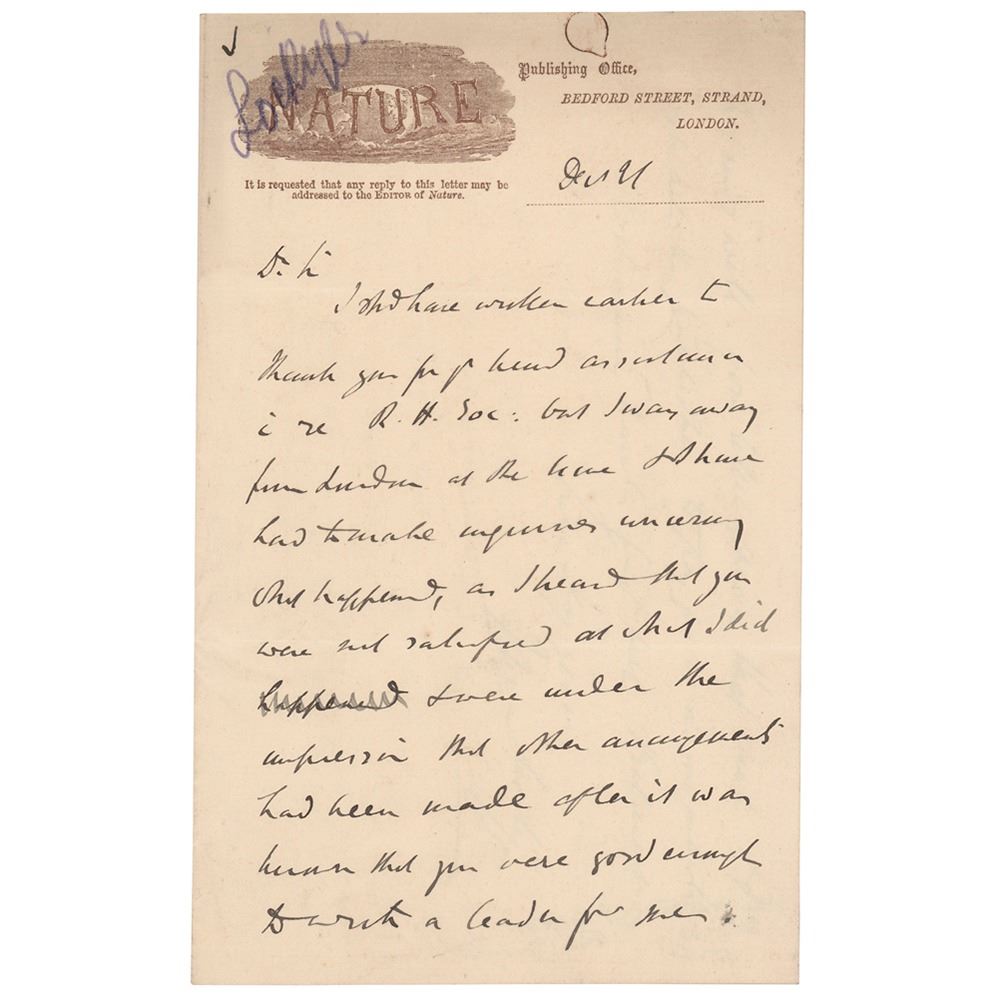 Lockyer
NATURE
Publishing Office,
BEDFORD STREET, STRAND,
LONDON.
It is requested that any reply to this letter may be
addressed to the EDITOR of Nature.
Dr Sir
I shd have written earlier to
thank you for yr kind assistance
in re R. H. Soc: but I was away
from London at the time & I have
had to make inquiries concerning
what happened, as I heard that you
were not satisfied at what I did
happened & were under the
impression that other arrangements
had been made after it was
known that you were good enough
to write a leader for me.